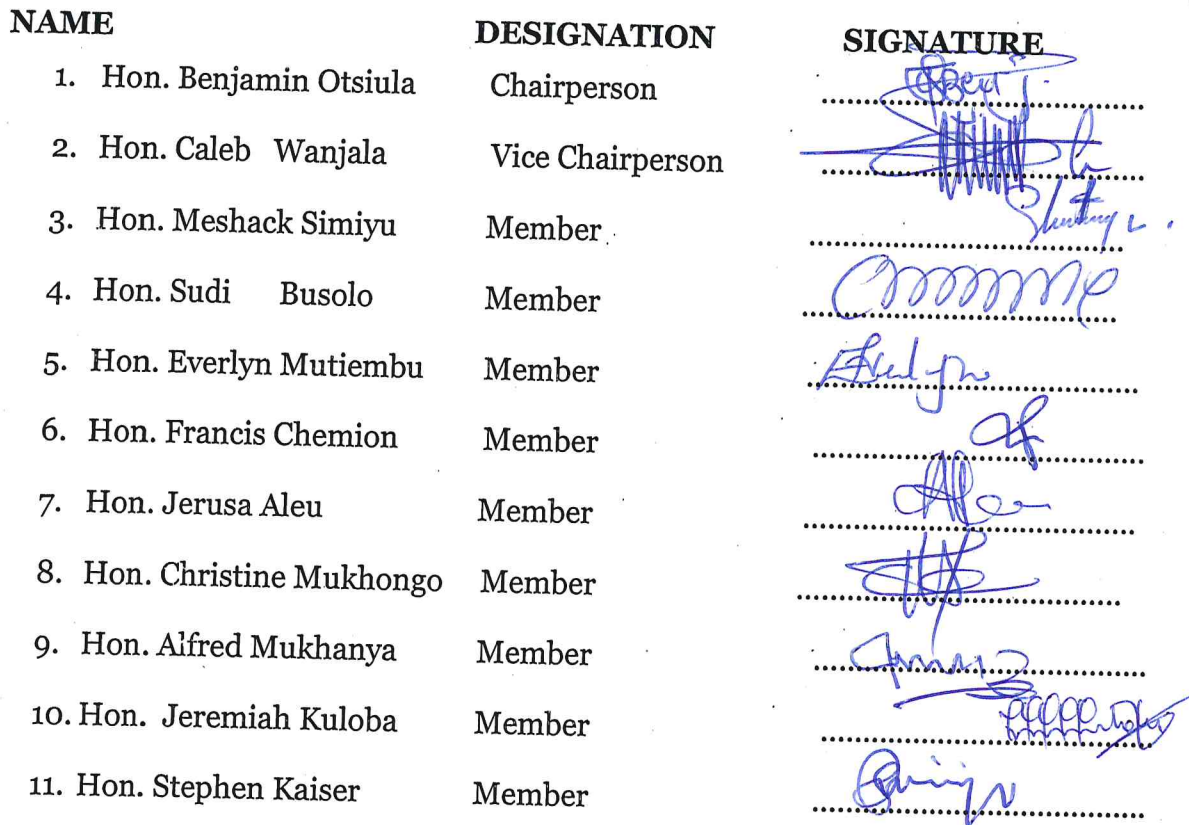 NAME DESIGNATION SIGNATURE
1. Hon. Benjamin Otsiula Chairperson
2. Hon. Caleb Wanjala Vice Chairperson
3. Hon. Meshack Simiyu Member
4. Hon. Sudi Busolo Member
5. Hon. Everlyn Mutiembu Member
6. Hon. Francis Chemion Member
7. Hon. Jerusa Aleu Member
8. Hon. Christine Mukhongo Member
9. Hon. Alfred Mukhanya Member
10. Hon. Jeremiah Kuloba Member
11. Hon. Stephen Kaiser Member